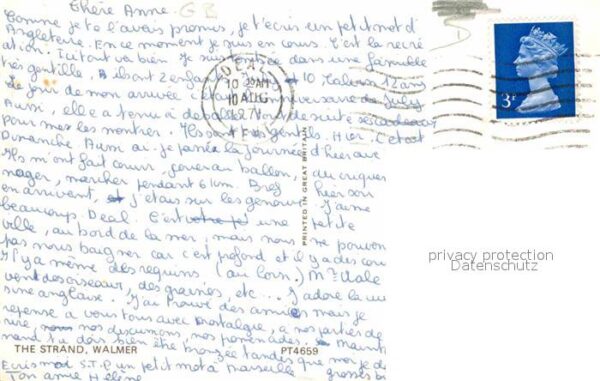 Chère Anne GB
Comme je te l'avais promis, je t'écris un petit mot d'
Angleterre. En ce moment je suis en cours. C'est la récré
ation. Ici tout va bien. Je suis dans une famille
très gentille. Ils ont 2 enfants 10 12 ans
Le jour de mon arrivée c'était l'anniversaire de July
Aussi, elle a tenu à de suite ses cadeaux
pour me les montrer. Ils sont très gentils. Hier c'était
Dimanche. Aussi ai-je passé la journée d'hier avec
Ils m'ont fait courir, jouer au ballon, au criquet
nager, marcher pendant 6 km. Bref hier soir
en arrivant, j'étais sur les genoux. J'aime
beaucoup Deal. C'est une petite
ville, au bord de la mer, mais nous ne pouvons
pas nous baigner car c'est profond et il y a des cou
Il y a même des requins (au loin). Mr
vent des oiseaux, des graines, etc... J'adore la cui
sine anglaise. J'ai trouvé des amies mais je
repense à vous tous avec nostalgie, à nos parties de
rire, nos discussions, nos promenades. Maint
nant tu dois bien être bronzée tandis que moi je
Ecris moi S.T.P un petit mot à Marseille grosses bi
Ton amie Hélène
DEAL
10 30 AM
10 AUG
1971
KENT
3P
PRINTED IN GREAT BRITAIN
privacy protection
Datenschutz
THE STRAND, WALMER PT4659